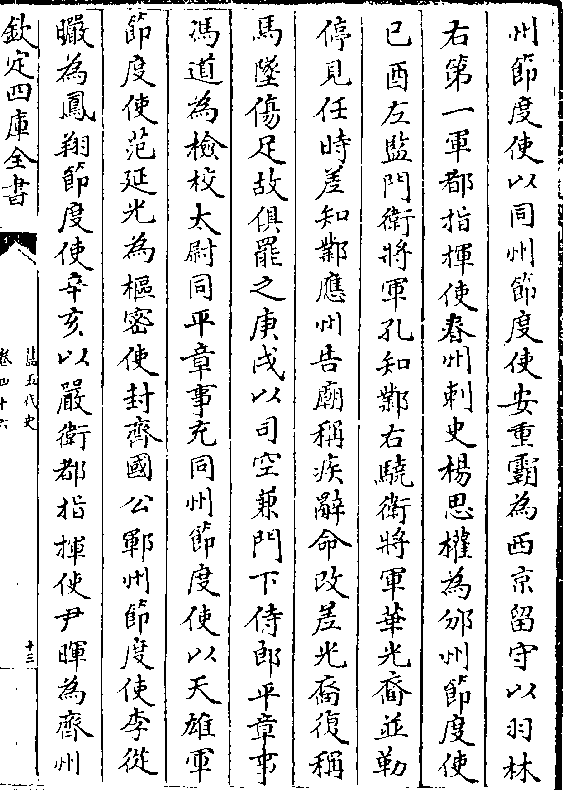 州節度使以同州節度使安重霸為西京留守以羽林
右第一軍都指揮使春州刺史楊思權為邠州節度使
已酉左監門衛將軍孔知鄴右驍衛將軍華光裔並勒
停見任時差知鄴應州告廟稱疾辭命改差光裔復稱
馬墜傷足故俱罷之庚戌以司空兼門下侍郎平章事
馮道為檢校太尉同平章事充同州節度使以天雄軍
節度使范延光為樞密使封齊國公鄆州節度使李從
曮為鳳翔節度使辛亥以嚴衛都指揮使尹暉為齊州
欽定四庫全書
舊五代史
卷四十六
十三